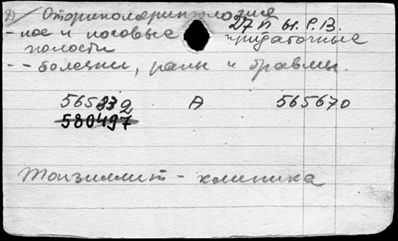 Оториноларингология
27 VI 61. Р.В.
- нос и носовые придаточные
полости
- - болезни, раны и травмы.
565832 А 565670
580497
Тонзиллит - клиника